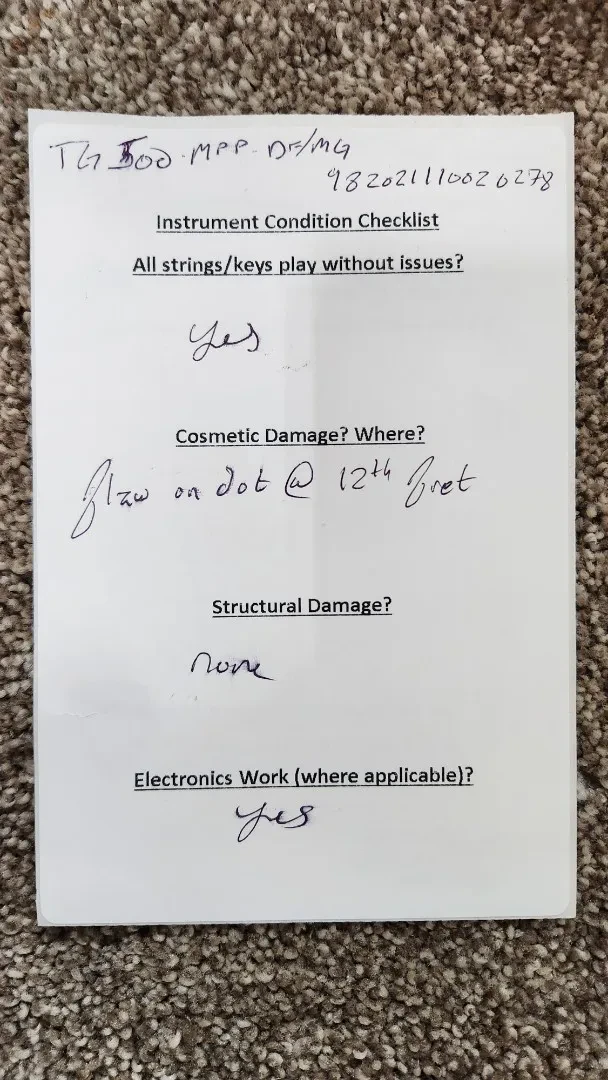 TG 500-MPP-DF/MG
982021110020278
Instrument Condition Checklist
All strings/keys play without issues?
yes
Cosmetic Damage? Where?
flaw on dot @ 12th fret
Structural Damage?
none
Electronics Work (where applicable)?
yes